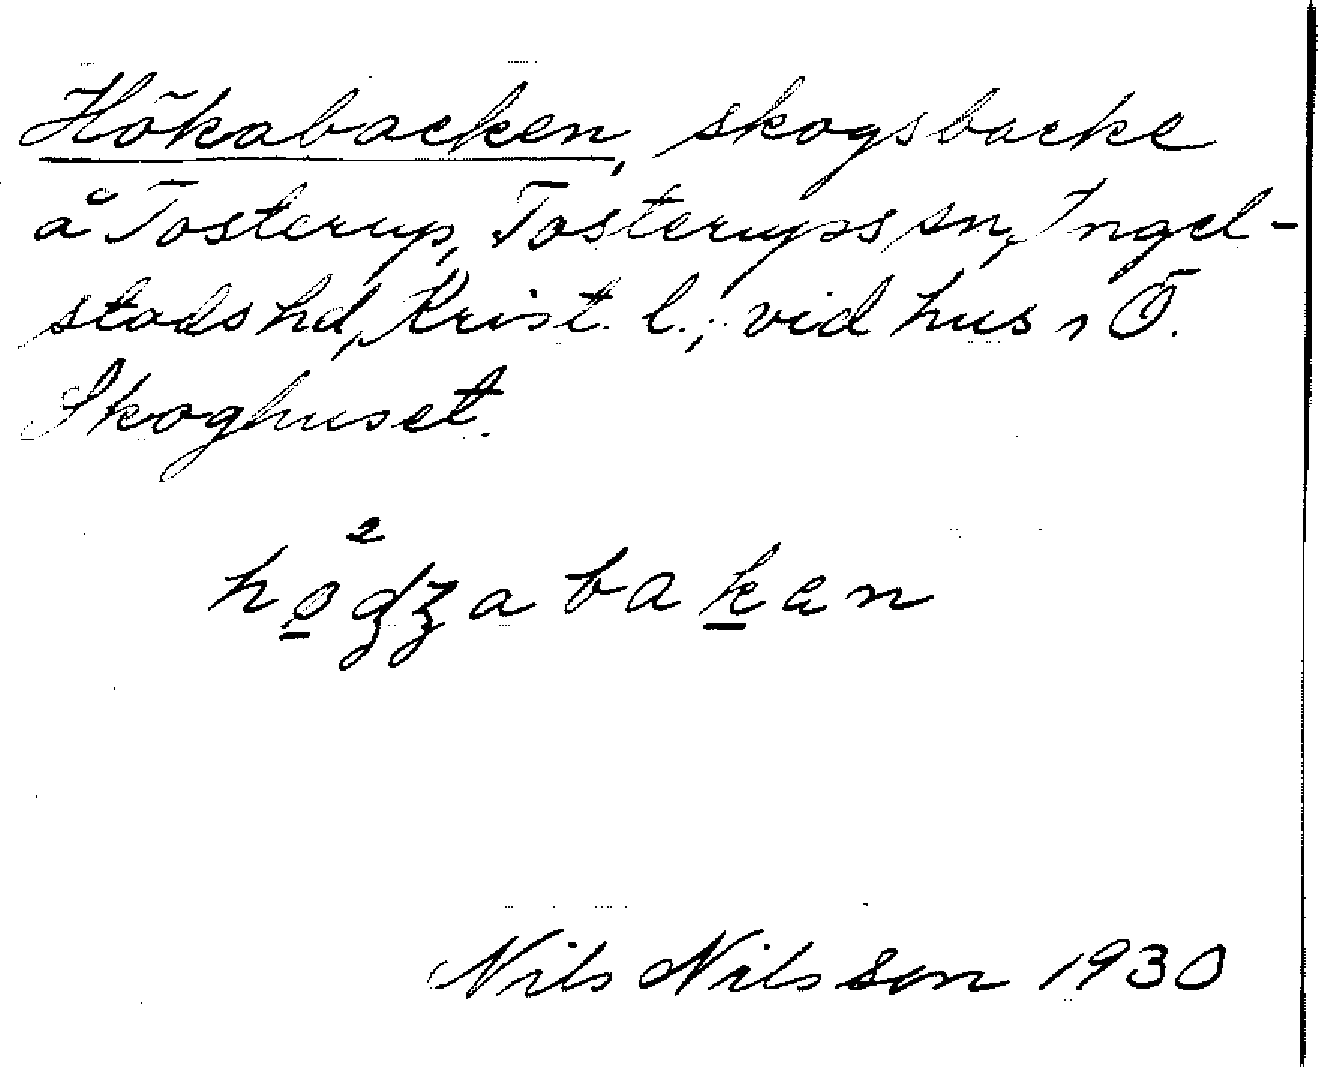 Hökabacken, skogsbacke
å Tosterup, Tosterups sn, Ingel-
stads hd, Krist. l.; vid hus 1 Ö.
Skoghuset.
Nils Nilsson 1930